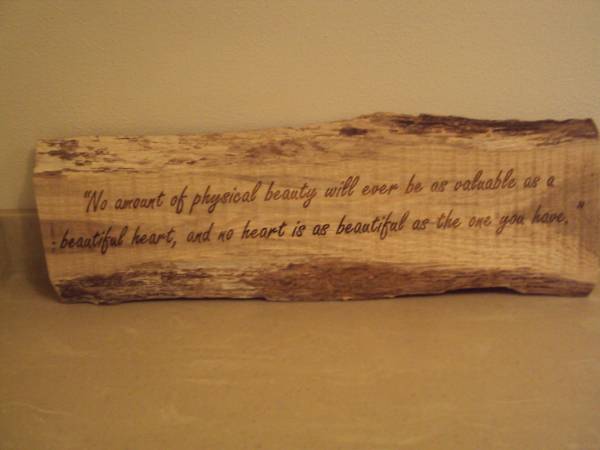 "No amount of physical beauty will ever be as valuable as a
beautiful heart, and no heart is as beautiful as the one you have."